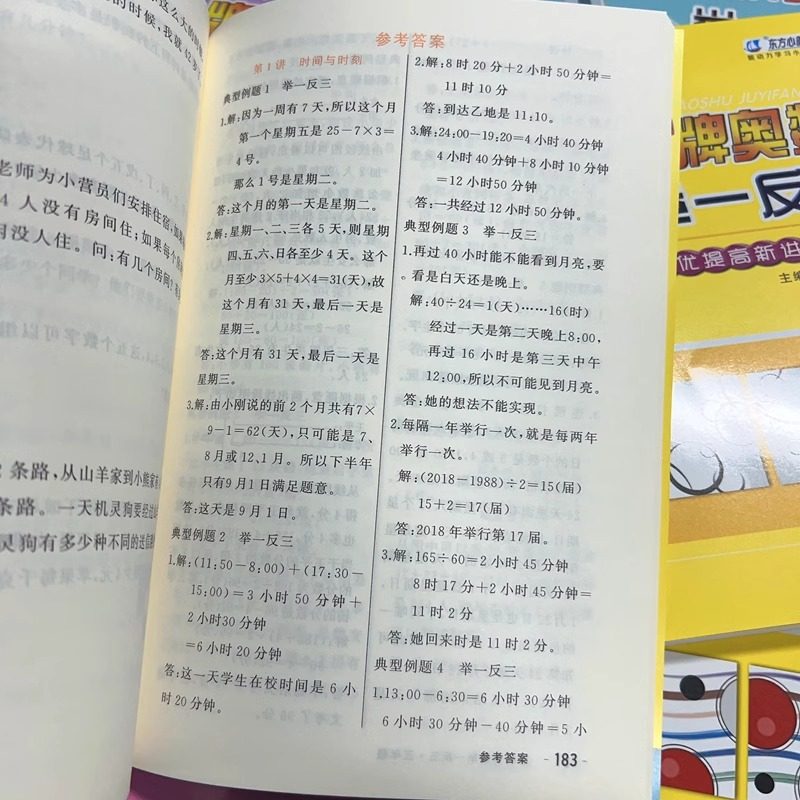 这么大的
的时候,我就42岁
老师为小营员们安排住宿,
4 人没有房间住;如果每个
间没人住。问:有几个房间?
条路,从山羊家到小熊家
条路。一天机灵狗要
灵狗有多少种不同的送信
参考答案
第1讲 时间与时刻
典型例题1 举一反三
1.解:因为一周有7天,所以这个月
第一个星期五是25-7×3=
4号。
那么1号是星期二。
答:这个月的第一天是星期二。
2.解:星期一、二、三各5天,则星期
四、五、六、日各至少4天。这个
月至少3×5+4×4=31(天),故
这个月有31天,最后一天是
星期三。
答:这个月有31天,最后一天是
星期三。
3.解:由小刚说的前2个月共有7×
9-1=62(天),只可能是7、
8月或12、1月。所以下半年
只有9月1日满足题意。
答:这天是9月1日。
典型例题2 举一反三
1.解:(11:50-8:00)+(17:30-
15:00)=3小时50分钟+
2小时30分钟
=6小时20分钟
答:这一天学生在校时间是6小
时20分钟。
2.解:8时20分+2小时50分钟=
11时10分
答:到达乙地是11:10。
3.解:24:00-19:20=4小时40分钟
4小时40分钟+8小时10分钟
=12小时50分钟
答:一共经过12小时50分钟。
典型例题3 举一反三
1.再过40小时能不能看到月亮,要
看是白天还是晚上。
解:40÷24=1(天)……16(时)
经过一天是第二天晚上8:00,
再过16小时是第三天中午
12:00,所以不可能见到月亮。
答:她的想法不能实现。
2.每隔一年举行一次,就是每两年
举行一次。
解:(2018-1988)÷2=15(届)
15+2=17(届)
答:2018年举行第17届。
3.解:165÷60=2小时45分钟
8时17分+2小时45分钟=
11时2分
答:她回来时是11时2分。
典型例题4 举一反三
1.13:00-6:30=6小时30分钟
6小时30分钟-40分钟=5小
参考答案 -183-
东方心
AOSHU JUYIFAN
牌奥数
举一反
优提高新
主编